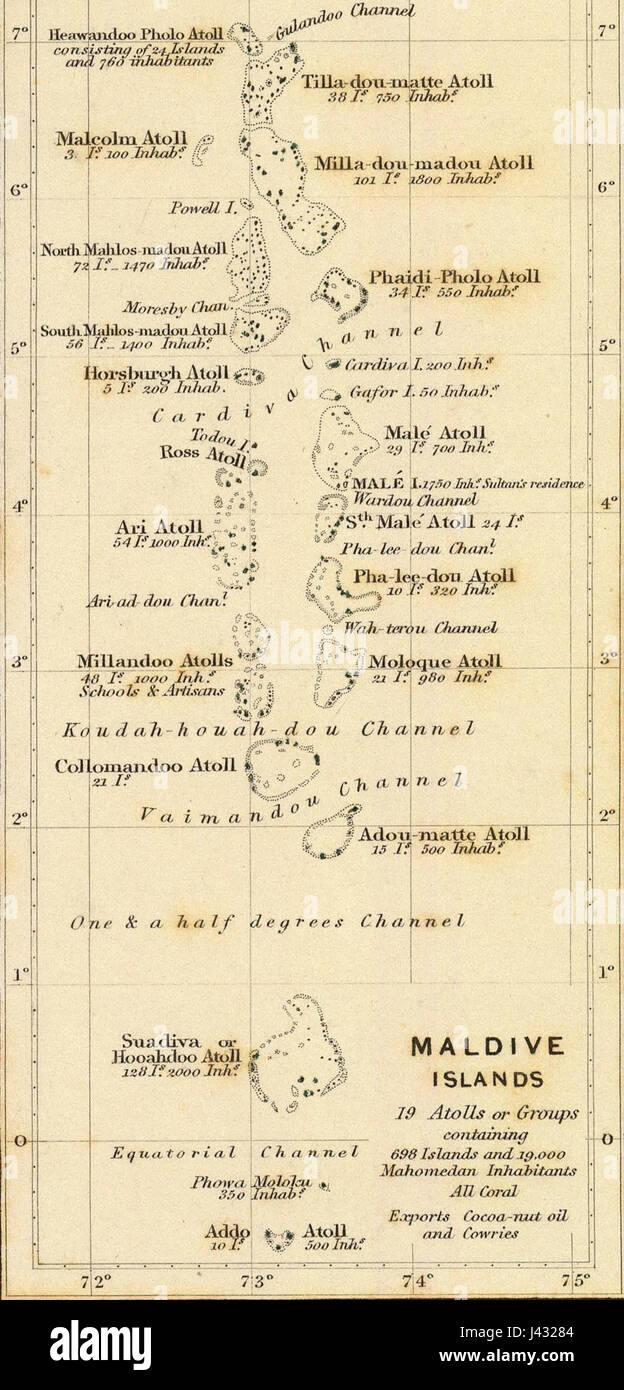 Gulandoo Channel
7° 7°
Heawandoo Pholo Atoll
consisting of 24 Islands
and 760 inhabitants
Tilla-dou-matte Atoll
38 Iˢ 750 Inhabˢ
Malcolm Atoll
3 Iˢ 100 Inhabˢ
Milla-dou-madou Atoll
101 Iˢ 1800 Inhabˢ
6° 6°
Powell I.
North Mahlos-madou Atoll
72 Iˢ 1470 Inhabˢ
Phaidi-Pholo Atoll
34 Iˢ 550 Inhabˢ
Moresby Chan.
South Mahlos-madou Atoll
56 Iˢ 1400 Inhabˢ
5° 5°
Cardiva Channel
Cardiva I. 200 Inhˢ
Horsburgh Atoll
5 Iˢ 200 Inhab.
Gafor I. 50 Inhabˢ
Todou I.
Ross Atoll
Malé Atoll
29 Iˢ 700 Inhˢ
MALÉ I. 1750 Inhˢ Sultan's residence
Wardou Channel
4° 4°
Sᵗʰ Malé Atoll 24 Iˢ
Ari Atoll
54 Iˢ 1000 Inhˢ
Pha-lee-dou Chanˡ
Pha-lee-dou Atoll
10 Iˢ 320 Inhˢ
Ari-ad-dou Chanˡ
Wah-terou Channel
3° 3°
Millandoo Atolls
48 Iˢ 1000 Inhˢ
Schools & Artisans
Moloque Atoll
21 Iˢ 980 Inhˢ
Koudah-houah-dou Channel
Collomandoo Atoll
21 Iˢ
Vaimandou Channel
2° 2°
Adou-matte Atoll
15 Iˢ 500 Inhabˢ
One & a half degrees Channel
1° 1°
Suadiva or
Hooahdoo Atoll
128 Iˢ 2000 Inhˢ
MALDIVE
ISLANDS
19 Atolls or Groups
containing
698 Islands and 19,000
Mahomedan Inhabitants
All Coral
Exports Cocoa-nut oil
and Cowries
0 0
Equatorial Channel
Phowa Moloku
350 Inhabˢ
Addo Atoll
10 Iˢ 500 Inhˢ
72° 73° 74° 75°
alamy
alamy
Image ID: J43284
www.alamy.com